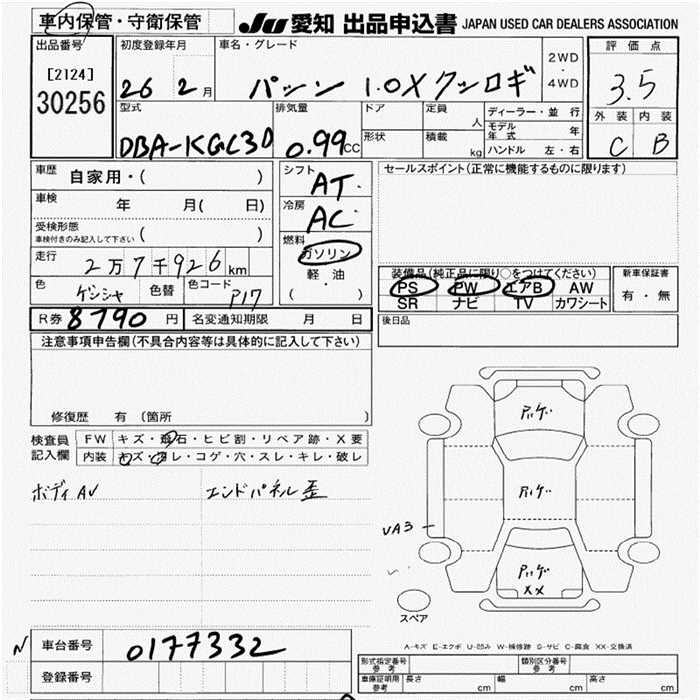 車内保管・守衛保管 JU 愛知 出品申込書 JAPAN USED CAR DEALERS ASSOCIATION
出品番号
[2124]
30256
初度登録年月
26 2月
車名・グレード
パッソ 1.0X クツロギ
2WD
・
4WD
評価点
3.5
外装 内装
C B
型式
DBA-KGC30
排気量
0.99CC
ドア
形状
定員
人
積載
kg
ディーラー・並行
モデル年式 年
ハンドル 左・右
車歴
自家用・( )
車検
年 月( 日)
受検形態
車検付きのみ記入して下さい ( )
走行
2万7千926km
色
色替
色コード
P17
シフト
AT
冷房
AC
燃料
ガソリン
軽・油
( )
セールスポイント(正常に機能するものに限ります)
装備品(純正品に限り○をつけてください)
PS PW エアB AW
SR ナビ TV カワシート
新車保証書
有・無
R券 8790円 名変通知期限 月 日
後日品
注意事項申告欄(不具合内容等は具体的に記入して下さい)
修復歴 有(箇所 )
検査員
記入欄
FW キズ・飛石・ヒビ割・リペア跡・X要
内装 キズ・汚レ・コゲ・穴・スレ・キレ・破レ
ボディAU エンドパネル歪
UA3
XX
スペア
A-キズ E-エクボ U-凹み W-補修跡 S-サビ C-腐食 XX-交換済
N 車台番号 0177332
登録番号
形式指定番号
参考
類別区分番号
参考
車庫証明用
参考
長さ cm 幅 cm 高さ cm